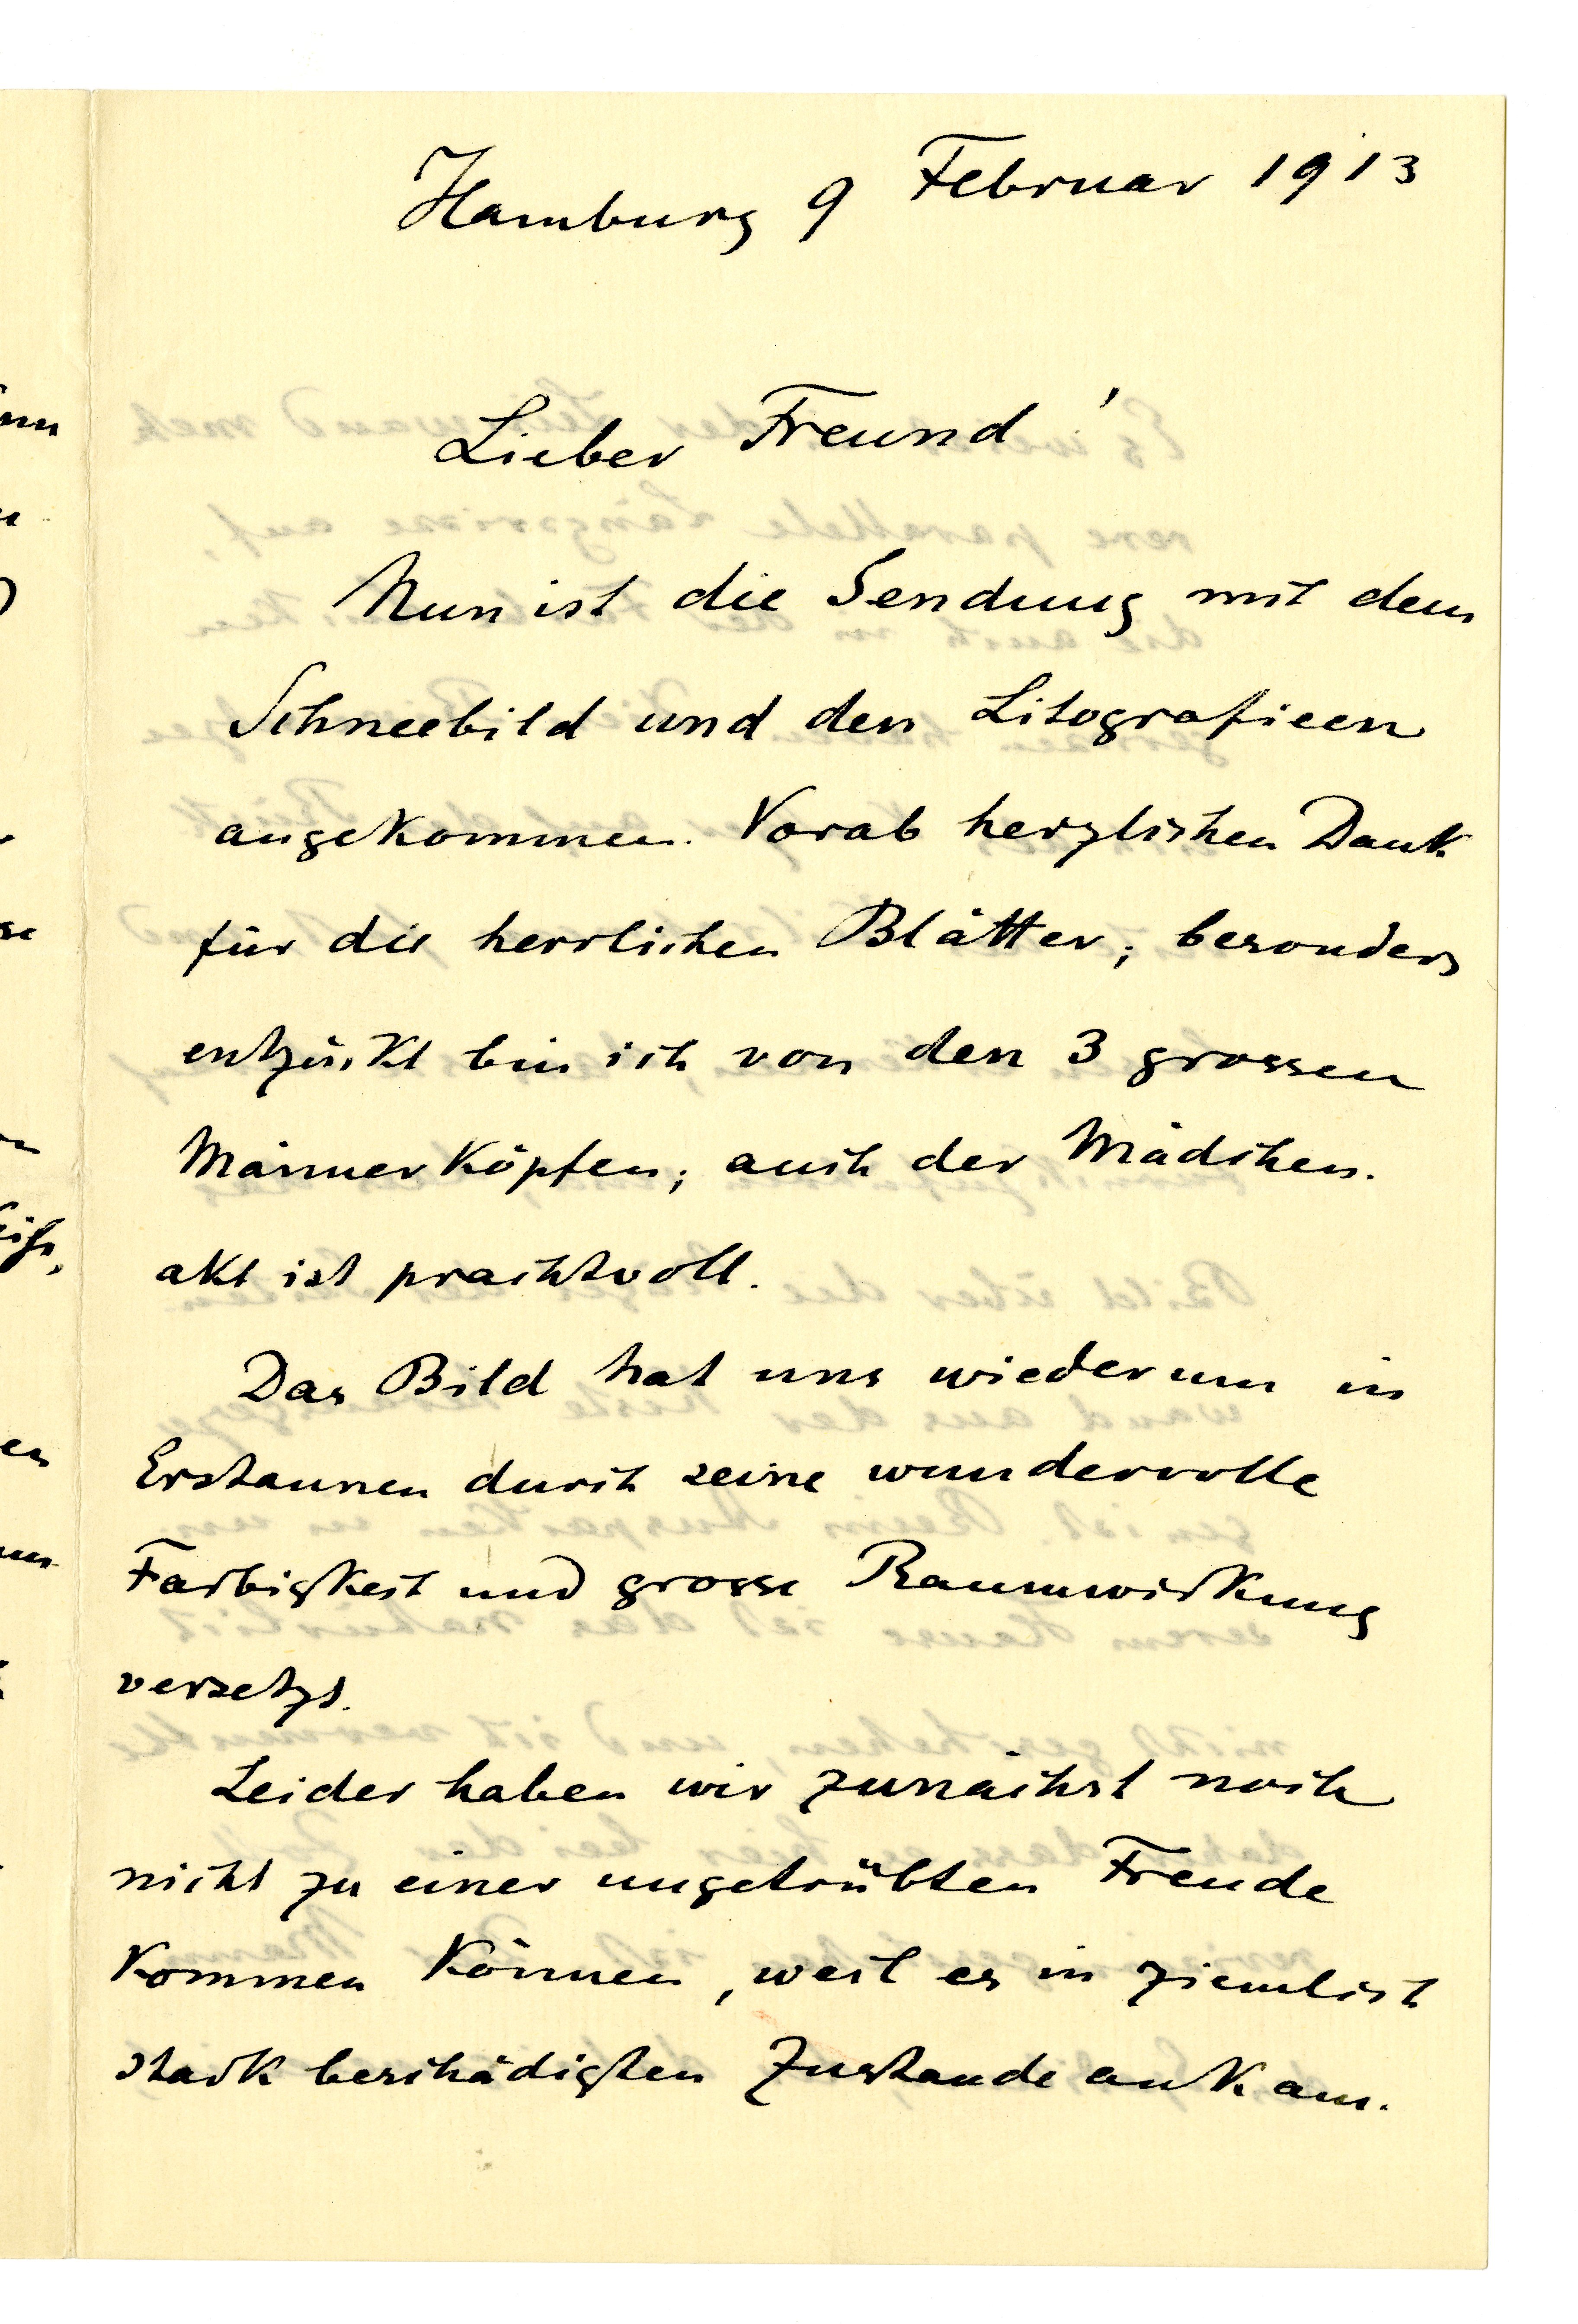 Hamburg 9 Februar 1913
Lieber Freund!
Nun ist die Sendung mit dem
Schneebild und den Litografieen
angekommen. Vorab herzlichen Dank
für die herrlichen Blätter; besonders
entzückt bin ich von den 3 grossen
Männerköpfen; auch der Mädchen-
akt ist prachtvoll.
Das Bild hat uns wiederum in
Erstaunen durch seine wundervolle
Farbigkeit und grosse Raumwirkung
versetzt.
Leider haben wir zunächst noch
nicht zu einer ungetrübten Freude
kommen können, weil es in ziemlich
stark beschädigten Zustande ankam.